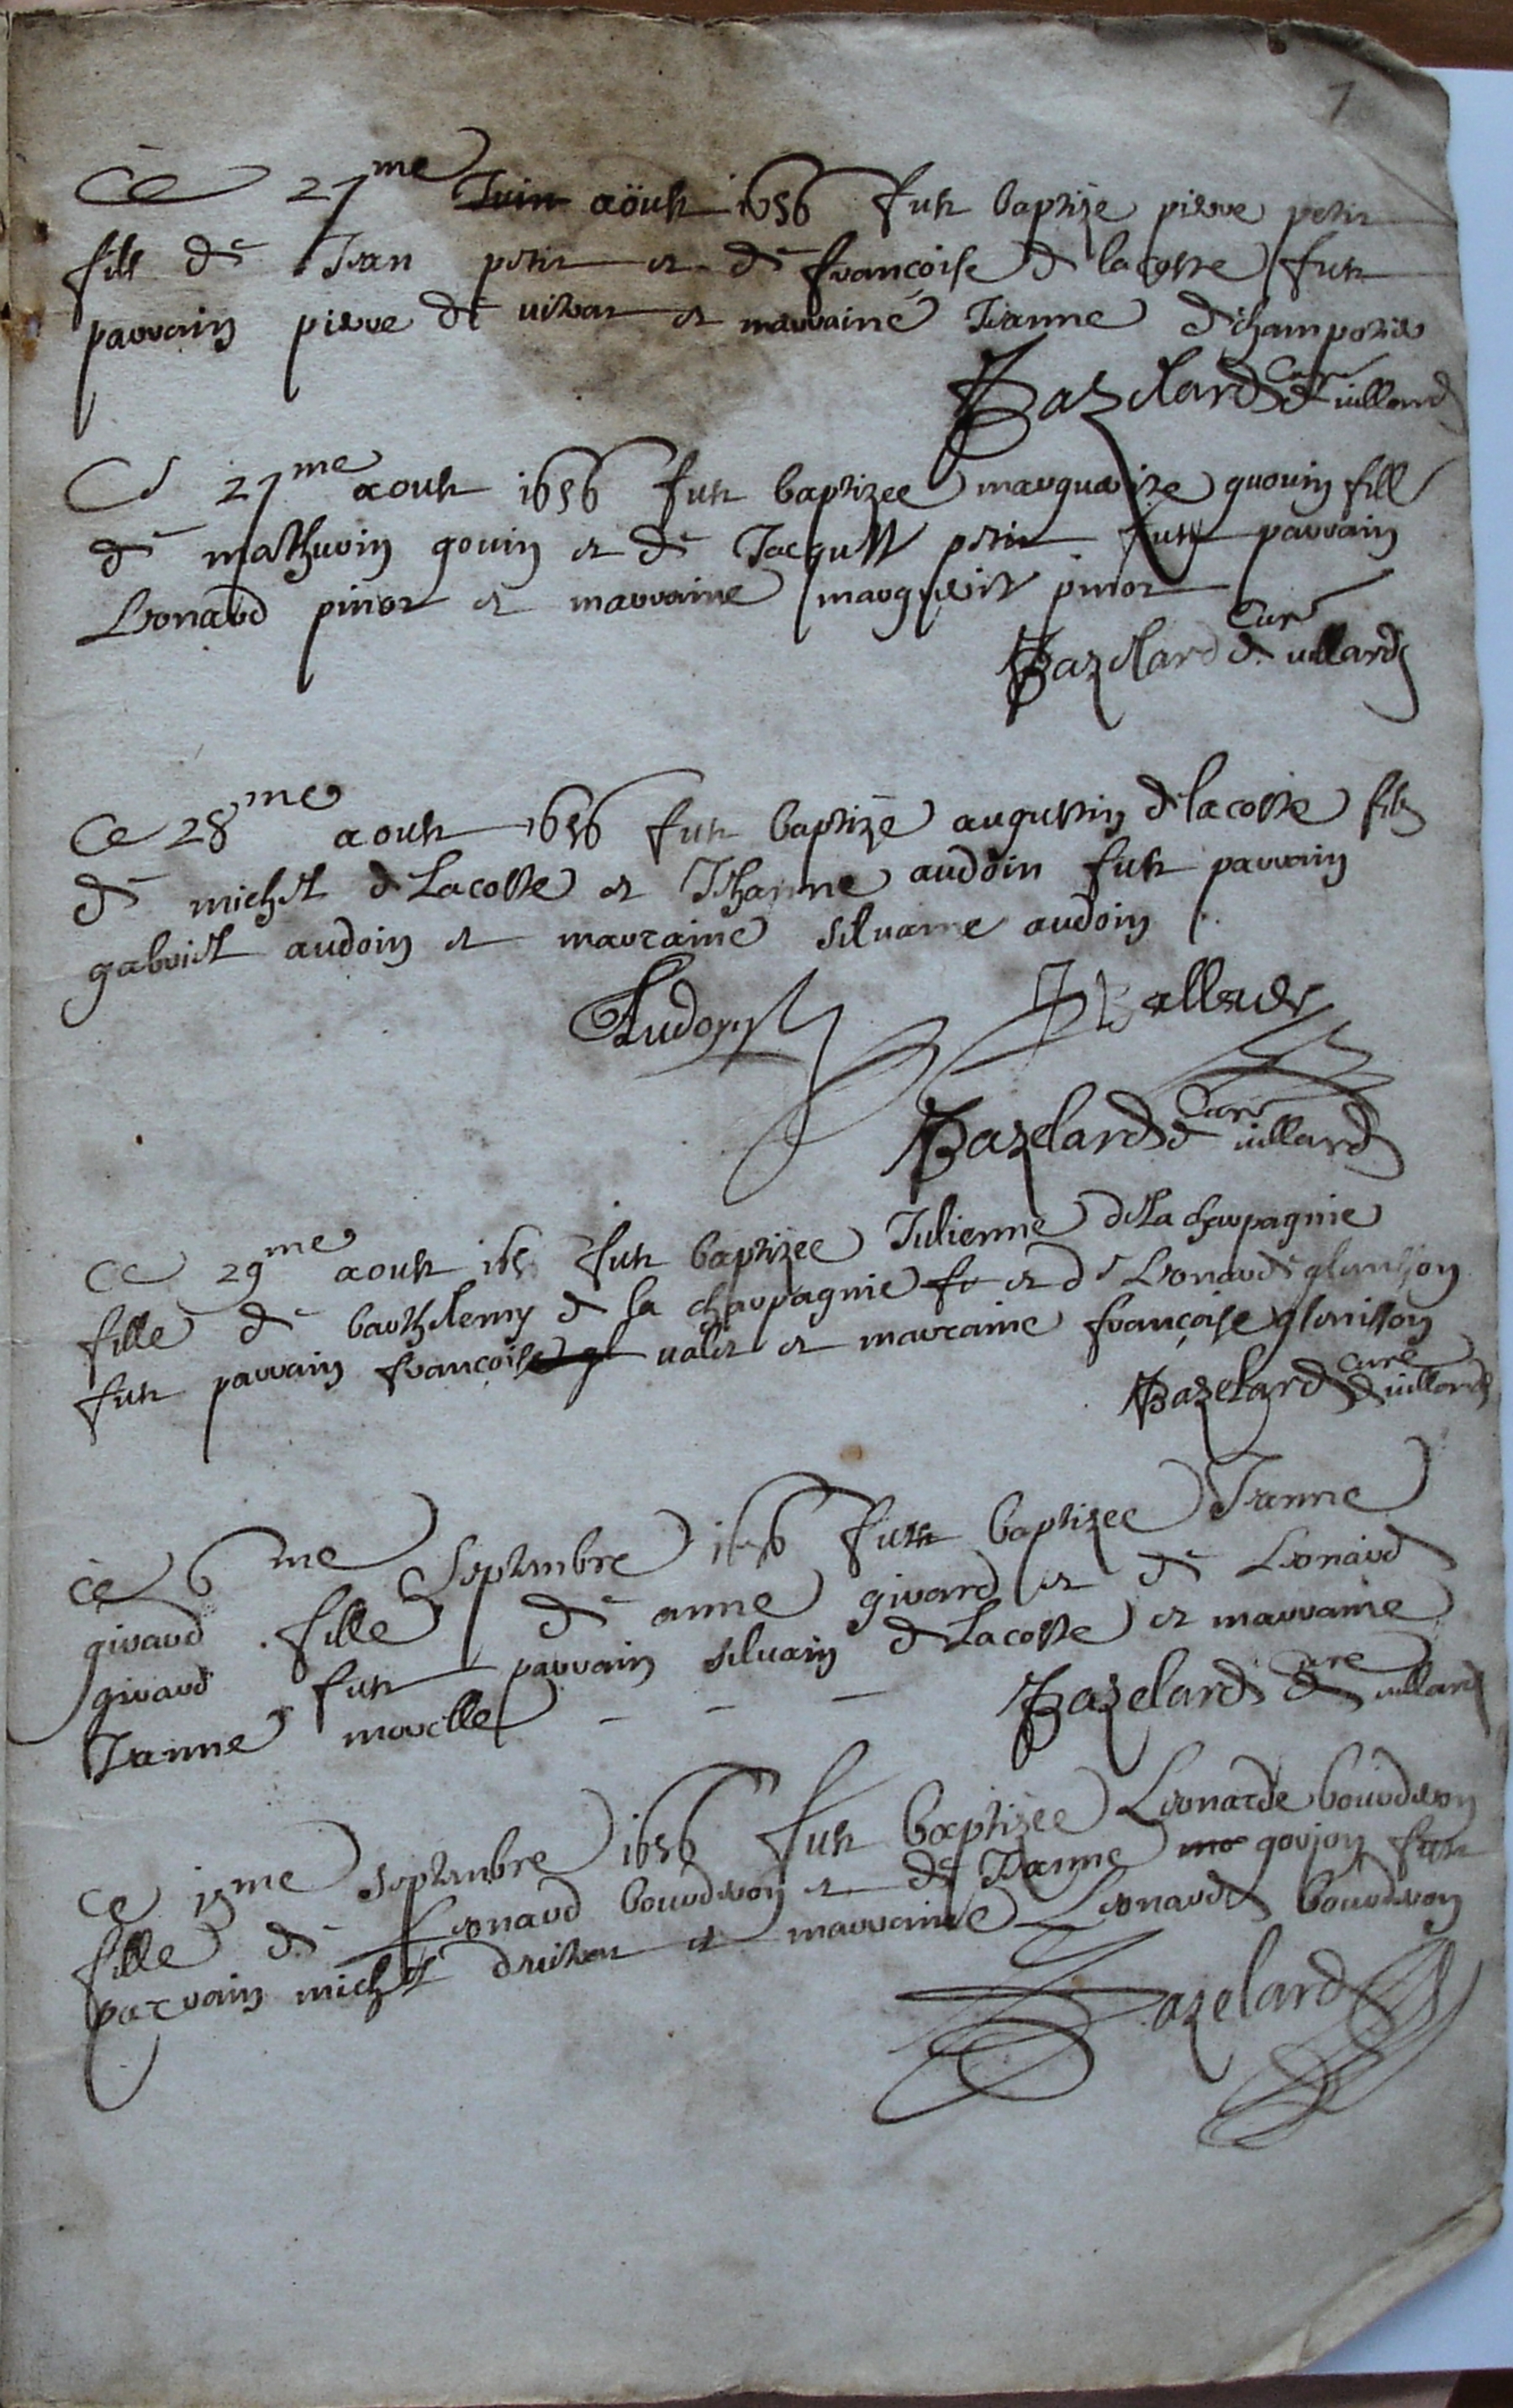 1
Ce 27me Juin aöust 1656 fust baptizé pierre petit
filz de Jean petit et de francoise de lacoste fust
parrain pierre de et marraine Jeanne dechampotier
Bazelard Curé de uillard
Ce 27me aoust 1656 fust baptizee marguerite gouin fille
de mathurin gouin et de Jacquette petit fust parrain
Leonard pinot et marraine marguerite pinot
Bazelard Curé de uillard
Ce 28me aoust 1656 fust baptizé augustin de lacoste filz
de michel de Lacoste et Jehanne audoin fust parrain
gabriel audoin et marraine siluaine audoin
Audoyn
Bazelard Curé de uillard
Ce 29me aoust 165 fust baptizee Julienne de la charpagnie
fille de barthelemy de la charpagnie fu et de Leonarde glenisson
fust parrain francoise gl ualet et marraine françoise glenisson
Bazelard curé de uillard
Ce 6me Septembre 1656 fust baptizee Jeanne
giraud fille de anne girard et de Leonard
giraud fust parrain siluain de Lacoste et marraine
Jeanne morelle
Bazelard curé de uillard
Ce 15me septembre 1656 fust baptizee Leonarde bourderon
fille de Leonard bourderon et de Jeanne mo goujon fust
parrain michel et marraine Leonarde bourderon
Bazelard